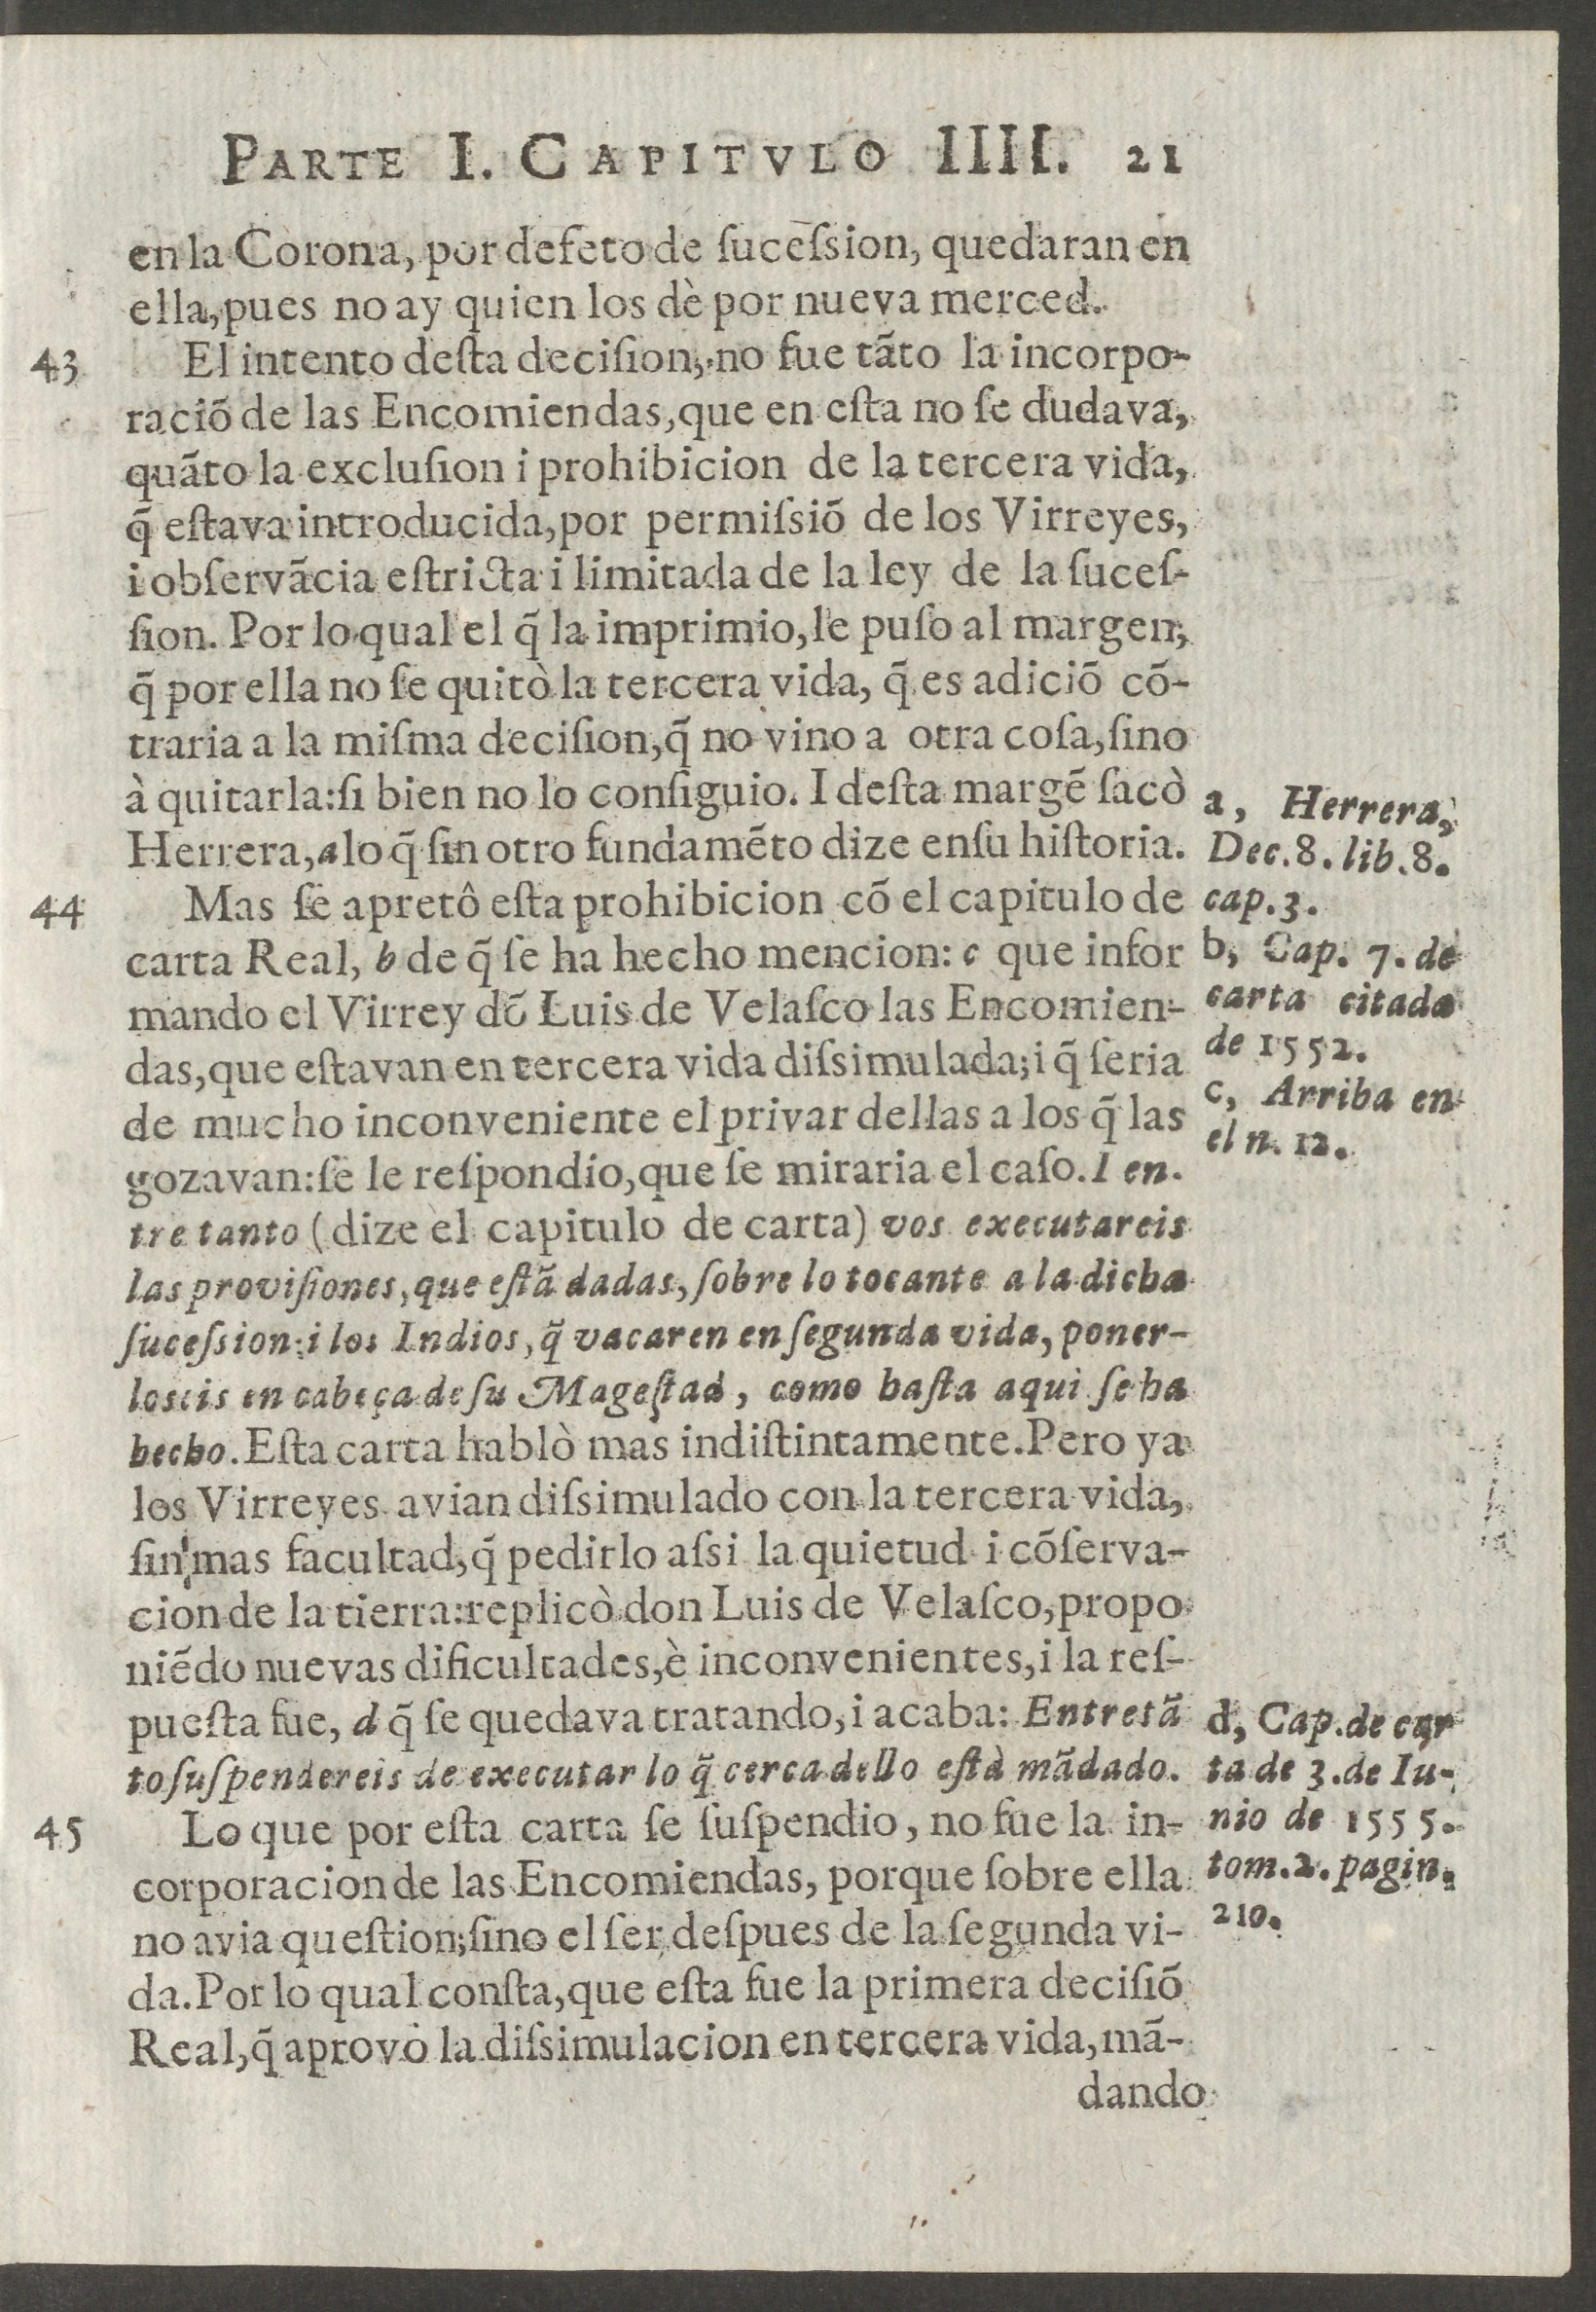 PARTE I. CAPITVLO IIII. 21
en la Corona, por defeto de ſuceſsion, quedaran en
ella, pues no ay quien los dè por nueva merced.
43 El intento deſta deciſion, no fue tãto la incorpo-
raciõ de las Encomiendas, que en eſta no ſe dudava,
quãto la excluſion i prohibicion de la tercera vida,
q̃ eſtava introducida, por permiſsiõ de los Virreyes,
i obſervãcia eſtricta i limitada de la ley de la ſuceſ-
ſion. Por lo qual el q̃ la imprimio, le puſo al margen,
q̃ por ella no ſe quitò la tercera vida, q̃ es adiciõ cõ-
traria a la miſma deciſion, q̃ no vino a otra coſa, ſino
à quitarla: ſi bien no lo conſiguio. I deſta margẽ ſacò
Herrera, a lo q̃ ſin otro fundamẽto dize en ſu hiſtoria.
44 Mas ſe apretô eſta prohibicion cõ el capitulo de
carta Real, b de q̃ ſe ha hecho mencion: c que infor
mando el Virrey dõ Luis de Velaſco las Encomien-
das, que eſtavan en tercera vida diſsimulada; i q̃ ſeria
de mucho inconveniente el privar dellas a los q̃ las
gozavan: ſe le reſpondio, que ſe miraria el caſo. I en.
tre tanto (dize el capitulo de carta) vos executareis
las proviſiones, que eſtã dadas, ſobre lo tocante a la dicha
ſuceſsion: i los Indios, q̃ vacaren en ſegunda vida, poner-
loseis en cabeça de ſu Mageſtad, como haſta aqui ſe ha
hecho. Eſta carta hablò mas indiſtintamente. Pero ya
los Virreyes avian diſsimulado con la tercera vida,
ſin mas facultad, q̃ pedirlo aſsi la quietud i cõſerva-
cion de la tierra: replicò don Luis de Velaſco, propo
niẽdo nuevas dificultades, è inconvenientes, i la reſ-
pueſta fue, d q̃ ſe quedava tratando, i acaba: Entretã
to ſuſpendereis de executar lo q̃ cerca dello eſtà mãdado.
45 Lo que por eſta carta ſe ſuſpendio, no fue la in-
corporacion de las Encomiendas, porque ſobre ella
no avia queſtion; ſino el ſer deſpues de la ſegunda vi-
da. Por lo qual conſta, que eſta fue la primera deciſiõ
Real, q̃ aprovò la diſsimulacion en tercera vida, mã-
dando
a, Herrera,
Dec. 8. lib. 8.
cap. 3.
b, Cap. 7. de
carta citada
de 1552.
c, Arriba en
el n. 12.
d, Cap. de car
ta de 3. de Iu-
nio de 1555.
tom. 2. pagin.
210.